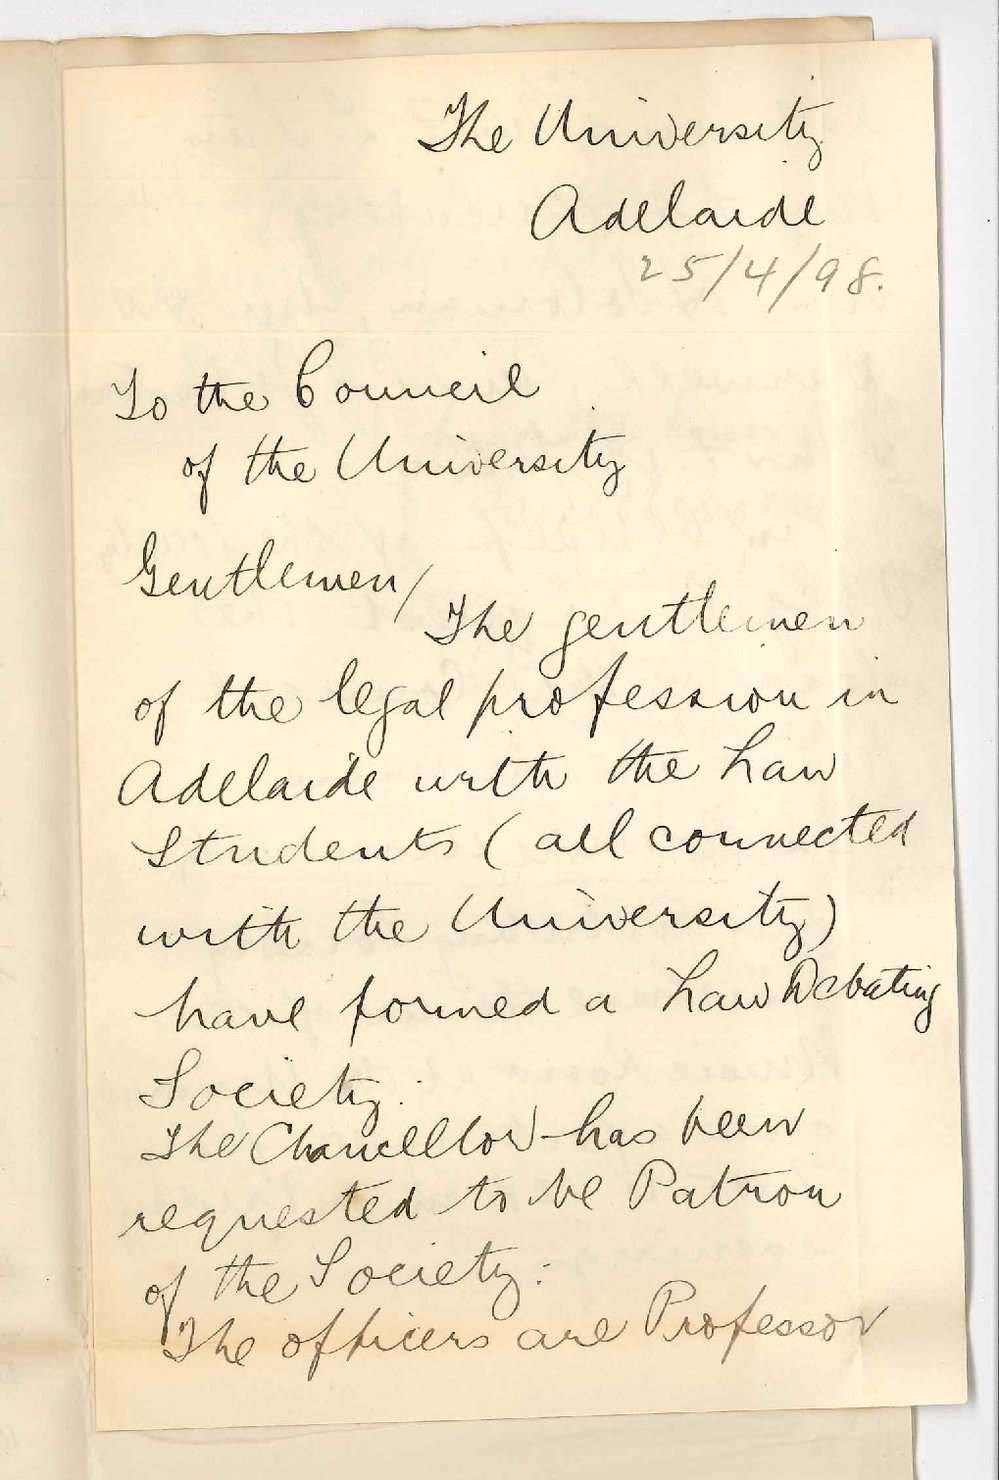 The University
Adelaide
25/4/98.
To the Council
of the University
Gentlemen/
The gentlemen
of the legal profession in
Adelaide with the Law
Students (all connected
with the University)
have formed a Law Debating
Society.
The Chancellor has been
requested to be Patron
of the Society:
The officers are Professor